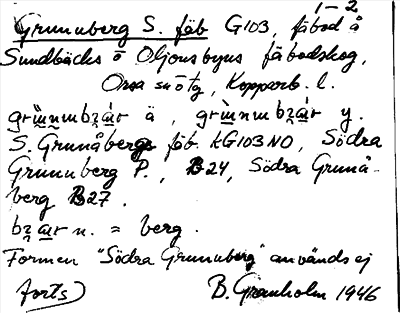 1-2
Grunuberg S. fäb G103, fäbod å
Sundbäcks o Oljonsbyns fäbodskog,
Orsa sn ö tg, Kopparb. l.
grùnumbzár ä, grùnumbzár y.
S. Grunåbergs fäb. kG103NO, Södra
Grunuberg P., B24, Södra Grunå-
berg B27.
bzár n. = berg.
Formen "Södra Grunuberg" används ej
forts) B. Granholm 1946